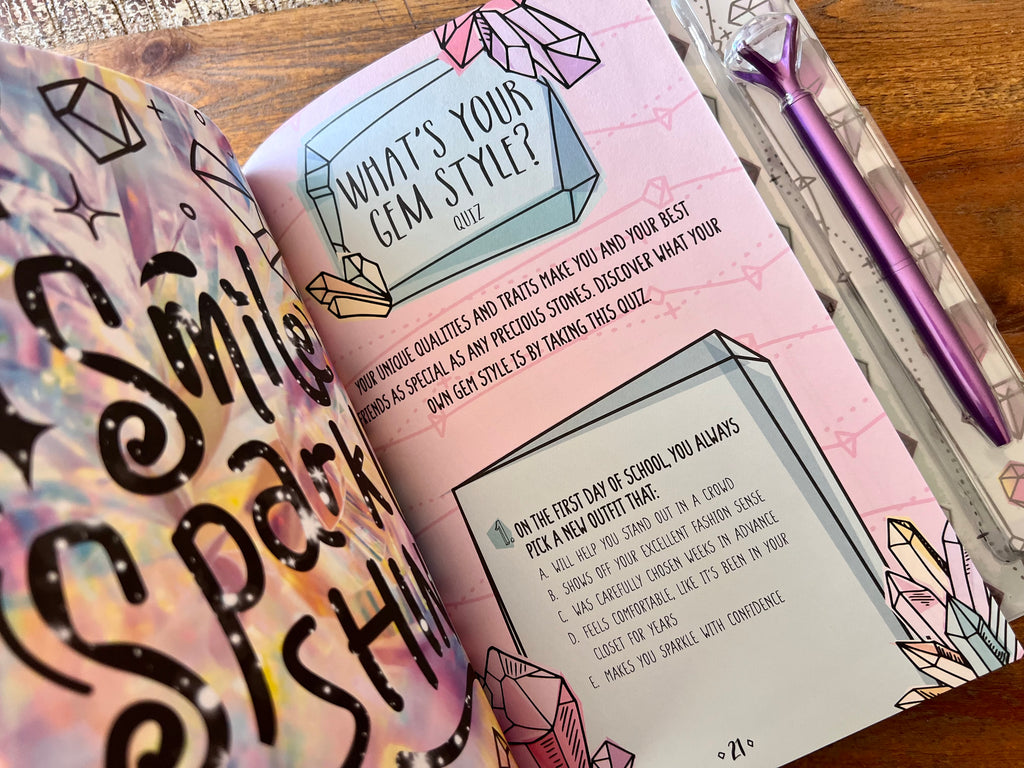 Smile
Spark
SHIN
WHAT'S YOUR
GEM STYLE?
QUIZ
YOUR UNIQUE QUALITIES AND TRAITS MAKE YOU AND YOUR BEST
FRIENDS AS SPECIAL AS ANY PRECIOUS STONES. DISCOVER WHAT YOUR
OWN GEM STYLE IS BY TAKING THIS QUIZ.
1. ON THE FIRST DAY OF SCHOOL, YOU ALWAYS
PICK A NEW OUTFIT THAT:
A. WILL HELP YOU STAND OUT IN A CROWD
B. SHOWS OFF YOUR EXCELLENT FASHION SENSE
C. WAS CAREFULLY CHOSEN WEEKS IN ADVANCE
D. FEELS COMFORTABLE, LIKE IT'S BEEN IN YOUR
CLOSET FOR YEARS
E. MAKES YOU SPARKLE WITH CONFIDENCE
21